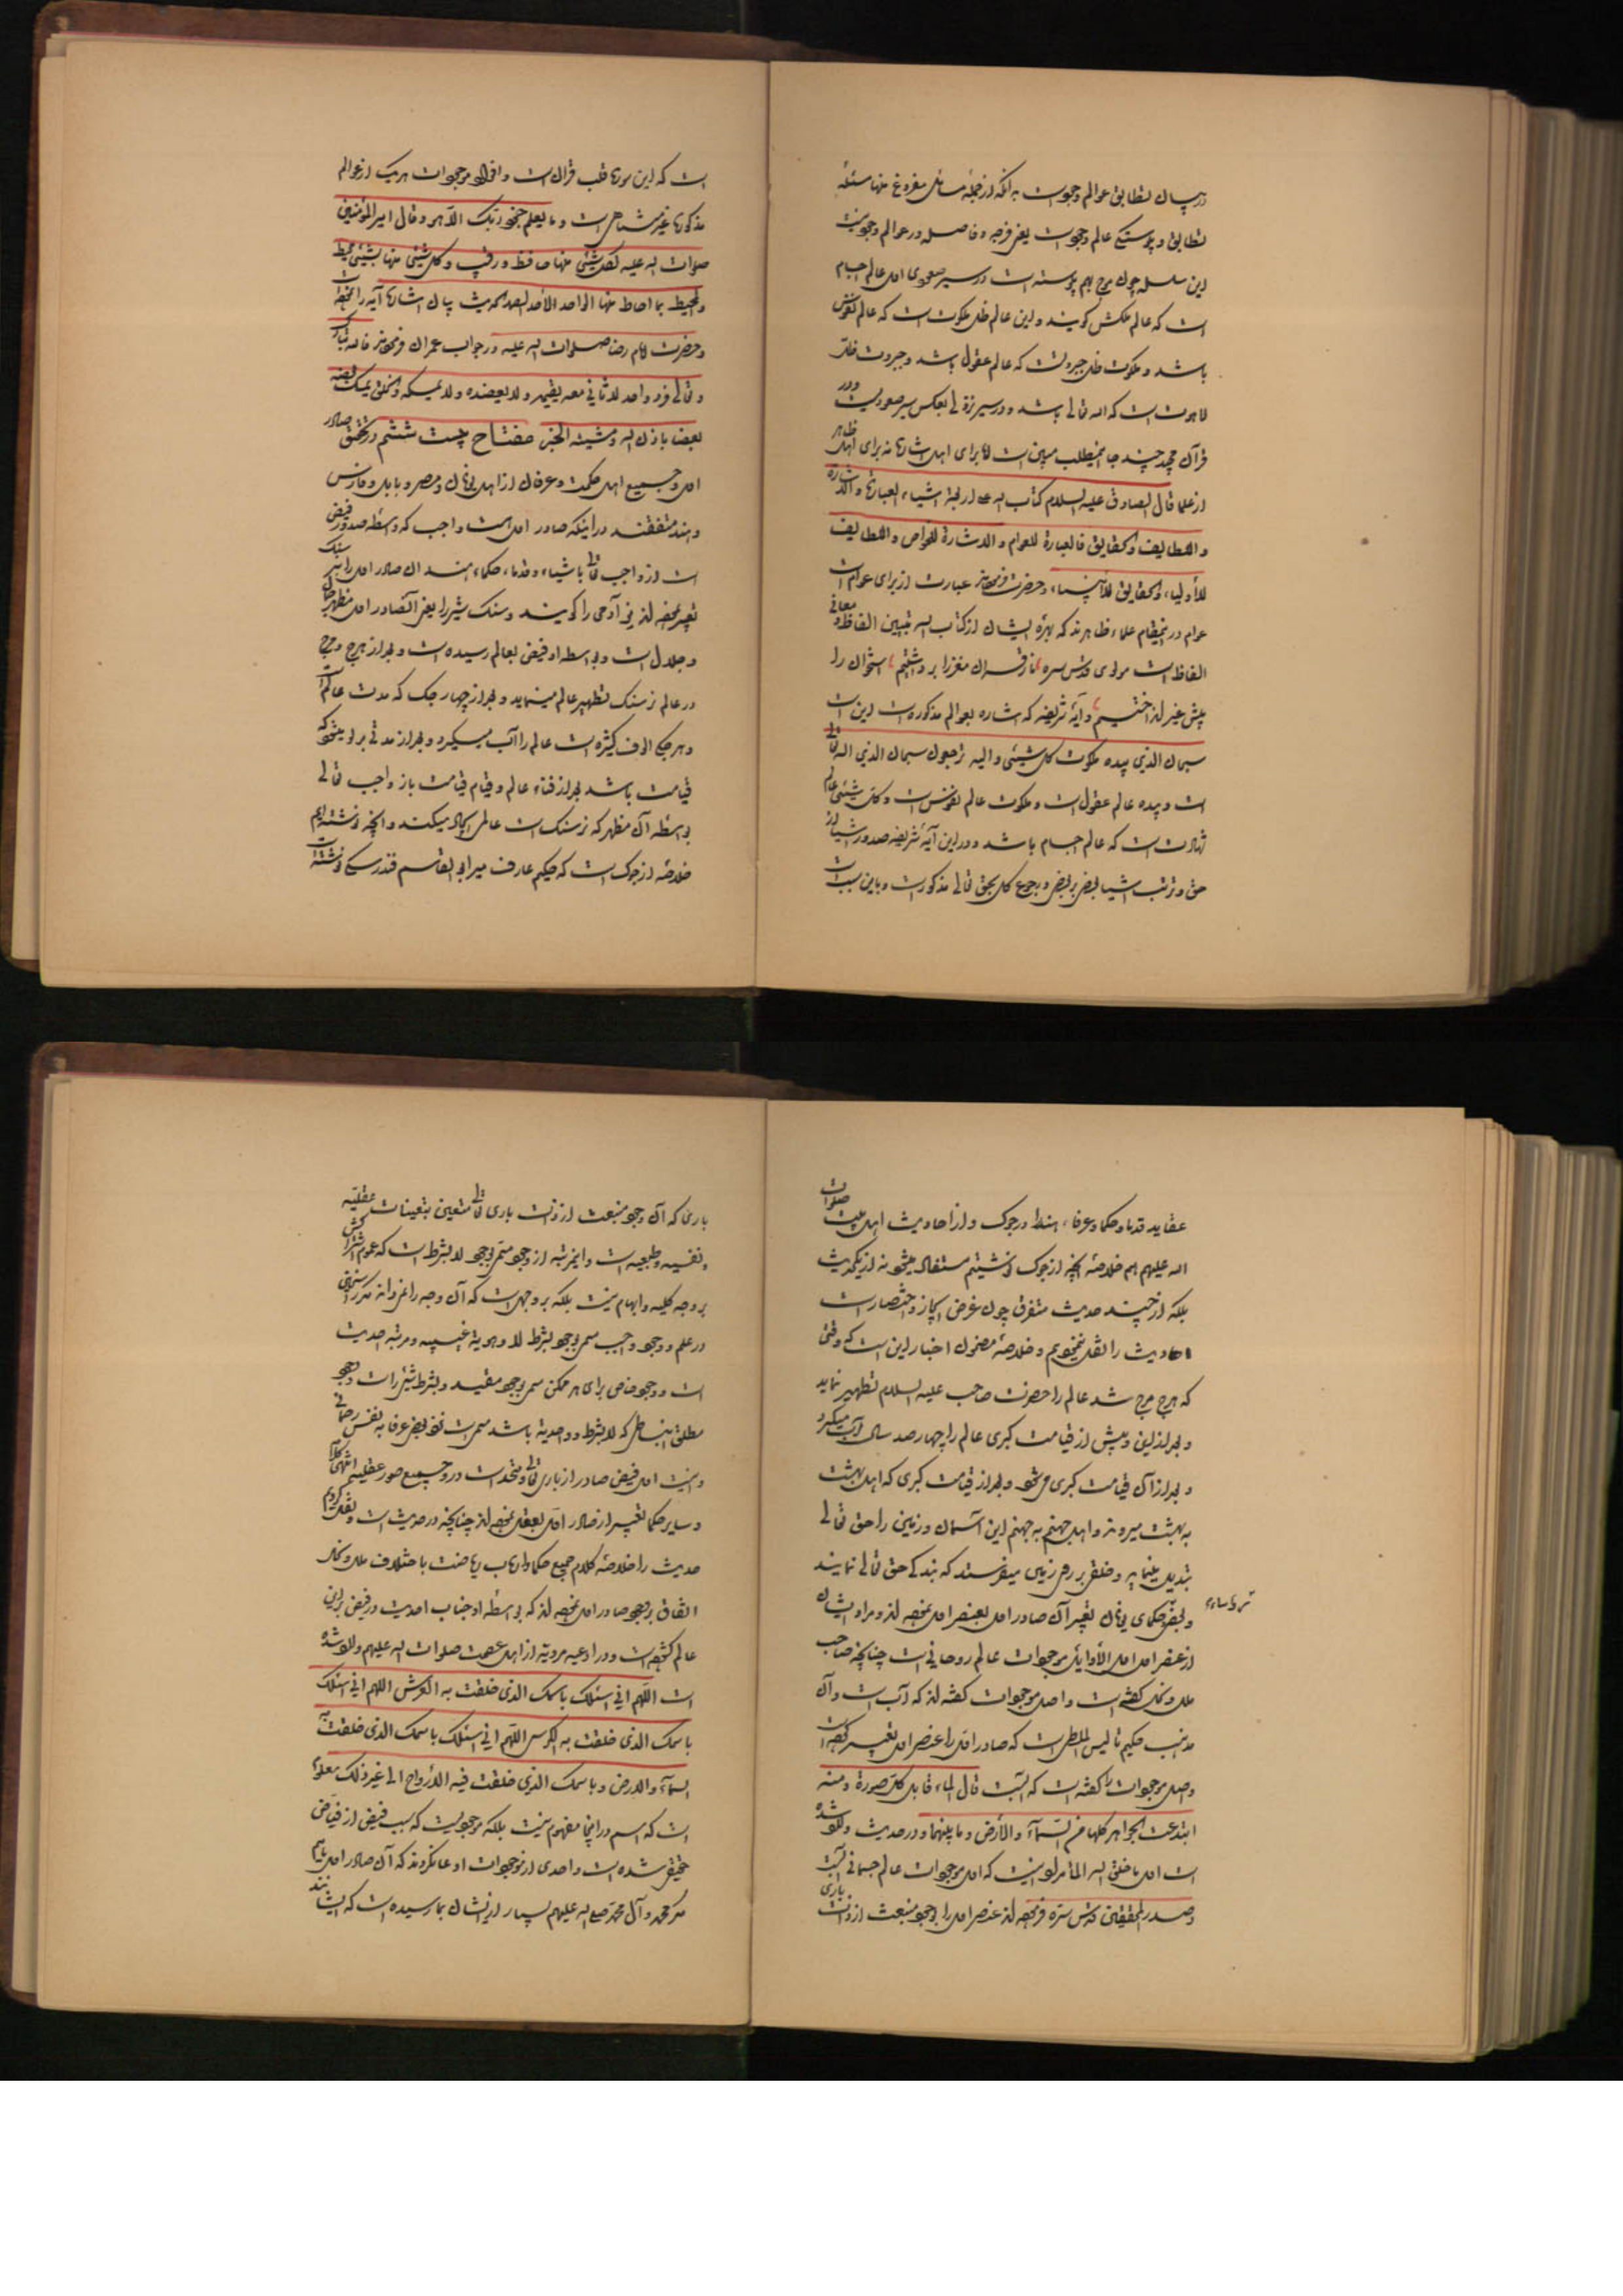 در بیان تطابق عوالم وجودست بدانکه از جمله مسائل مفروغ عنها مسئله
تطابق و پیوستگی عالم وجودات یعنی فرجه و فاصله در عوالم وجود نیست
این سلسله چون موج بهم پیوسته است در سیر صعودی اول عالم اجسام
است که عالم ملکش گویند و این عالم ظل ملکوت است که عالم نفوس
باشد و ملکوت ظل جبروتست که عالم عقول باشد و جبروت ظل
لاهوت است که الله تعالی باشد و در سیر نزولی بعکس سیر صعودیست و در
قرآن مجید چند جا اینمطلب مبین است اما برای اهل اشارة نه برای اهل ظاهر
از علما قال الصادق علیه السلام کتاب الله علی اربعة اشیاء العبارة والاشارة
واللطایف والحقایق فالعبارة للعوام والاشارة للخواص واللطایف
للاولیاء والحقایق للانبیاء حضرت فرموده‌اند عبارت از برای عوام است
عوام در اینمقام علماء ظاهرند که بهره ایشان از کتاب الله تبیین الفاظ و معانی
الفاظ است مولوی قدس سره ما ز قرآن مغز را برداشتیم استخوان را
پیش غیر انداختیم و آیه شریفه که اشاره بعوالم مذکوره است این است
سبحان الذی بیده ملکوت کل شیئی والیه ترجعون سبحان الذی الله تعالی
است و بیده عالم عقول است و ملکوت عالم نفوس است و کل شیئی عالم
شهادت است که عالم اجسام باشد و در این آیه شریفه صدور اشیا از
حق و ترتب اشیا بعضی بر بعض و رجوع کل بحق تعالی مذکور است و باین سبب است
است که این سوره قلب قرآن است و افراد موجودات هر یک از عوالم
مذکوره غیر متناهی است و ما یعلم جنود ربک الا هو و قال امیر المؤمنین
صلوات الله علیه لکل شیئی منها حافظ و رقیب و کل شیئی منها بشیئی محیط
والمحیط بما احاط منها الواحد الاحد الصمد الحدیث
و حضرت امام رضا صلوات الله علیه در جواب عمران فرموده‌اند فالله تبارک
و تعالی فرد واحد لا ثانی معه یقیمه ولا یعضده ولا یمسکه والخلق یمسک بعضه
بعضا باذن الله و مشیته الخبر مفتاح بیست ششم در تحقیق صادر
اول و جمیع اهل حکمت و عرفان از اهل یونان و مصر و بابل و فارس
و هند متفقند در اینکه صادر اول است واجب که واسطه صدور فیض
است از واجب تعالی باشیاء و قدماء حکماء هند آن صادر اول را نرسنک
تعبیر نموده‌اند نر آدمی را گویند و سنک شیر را یعنی آنصادر اول مظهر جمال
و جلال است و بواسطه او فیض بعالم رسیده است و بعد از هرج و مرج
در عالم نرسنک تطهیر عالم مینماید و بعد از چهار جک که مدت عالم است
و هر جکی الوف کثیره است عالم را آب میگیرد و بعد از مدتی
قیامت باشد بعد از فناء عالم و قیام قیامت باز واجب تعالی
بواسطه آن مظهر که نرسنک است عالمی ایجاد میکند و آنچه نوشته‌ایم
خلاصه از جوک است که حکیم عارف میر ابو القاسم فندرسکی نوشته است
عقاید قدما و حکما و عرفاء هند در جوک و از احادیث اهل بیت صلوات
الله علیهم هم خلاصه آنچه از جوک نوشتیم مستفاد میشود نه از یکحدیث
بلکه از چند حدیث متفرق چون غرض ایجاز و اختصار است
احادیث را نقل ننمودیم و خلاصه مضمون اخبار این است که وقتی
که هرج مرج شد عالم را حضرت صاحب علیه السلام تطهیر نماید
و بعد از این و پیش از قیامت کبری عالم را چهار صد سال آب میگیرد
و بعد از آن قیامت کبری می‌شود و بعد از قیامت کبری که اهل بهشت
به بهشت میروند و اهل جهنم به جهنم این آسمان و زمین را حق تعالی
تبدیل مینماید و خلقی بر روی زمین میفرستد که بندگی حق تعالی نمایند
و بعضی حکمای یونان تعبیر آن صادر اول بعنصر اول نموده‌اند و مراد ایشان
از عنصر اول اول الاوایل موجودات عالم روحانی است چنانچه صاحب
ملل و نحل گفته است و اصل موجودات گفته‌اند که آب است و آن
مذهب حکیم تالیس الملطی است که صادر اول را عنصر اول تعبیر کرده است
و اصل موجودات را گفته است که آبست قال الماء قابل کل صورة و منه
ابتدعت الجواهر کلها من السماء والارض و ما بینهما و در حدیث وارد شده
است اول ما خلق الله الماء مراد اینست که اول موجودات عالم جسمانی آبست
و صدر المحققین قدس سره فرموده‌اند عنصر اول را بوجود منبعث از ذات باری
باری که آن وجود منبعث از ذات باری تعالی متعین بتعینات عقلیه
و نفسیه و طبعیه است و این مرتبه از وجود مسمی بوجود لا بشرط است که عموم اشتراکش
بر وجه کلیه و ابهام نیست بلکه بر وجهی است که آن وجه را غیر
در علم و وجود واجب مسمی بوجود بشرط لا و هویة غیبیه و مرتبه احدیت
است و وجود خاص برای هر ممکن مسمی بوجود مقید و بشرط شیئی است وجود
مطلق انبساطی که لا بشرط و واحدیة باشد مسمی است نزد بعض عرفا به نفس رحمانی
و نیست اول فیض صادر از باری تعالی و متحد است در وی جمیع صور عقلیه انتهی کلامه
و سایر حکما تعبیر از صادر اول بعقل نموده‌اند چنانچه در حدیث است و نقل کردیم
حدیث را خلاصه کلام جمیع حکما و ارباب ریاضت با اختلاف ملل و نحل
اتفاق بوجود صادر اول نموده‌اند که بواسطه او جناب احدیت در فیض بر این
عالم گشوده است و در ادعیه مرویه از اهل عصمت صلوات الله علیهم وارد شده
است اللهم انی اسئلک باسمک الذی خلقت به العرش اللهم انی اسئلک
باسمک الذی خلقت به الکرسی اللهم انی اسئلک باسمک الذی خلقت به
السماء والارض و باسمک الذی خلقت فیه الارواح الی غیر ذلک معلوم
است که اسم در اینجا مفهوم نیست بلکه موجودیست که سبب فیض از فیاض
حقیقی شده است و احدی از موجودات ادعا نکردند که آن صادر اول مائیم
مگر محمد و آل محمد صلی الله علیهم بسیار از ایشان بما رسیده است که ایشانند